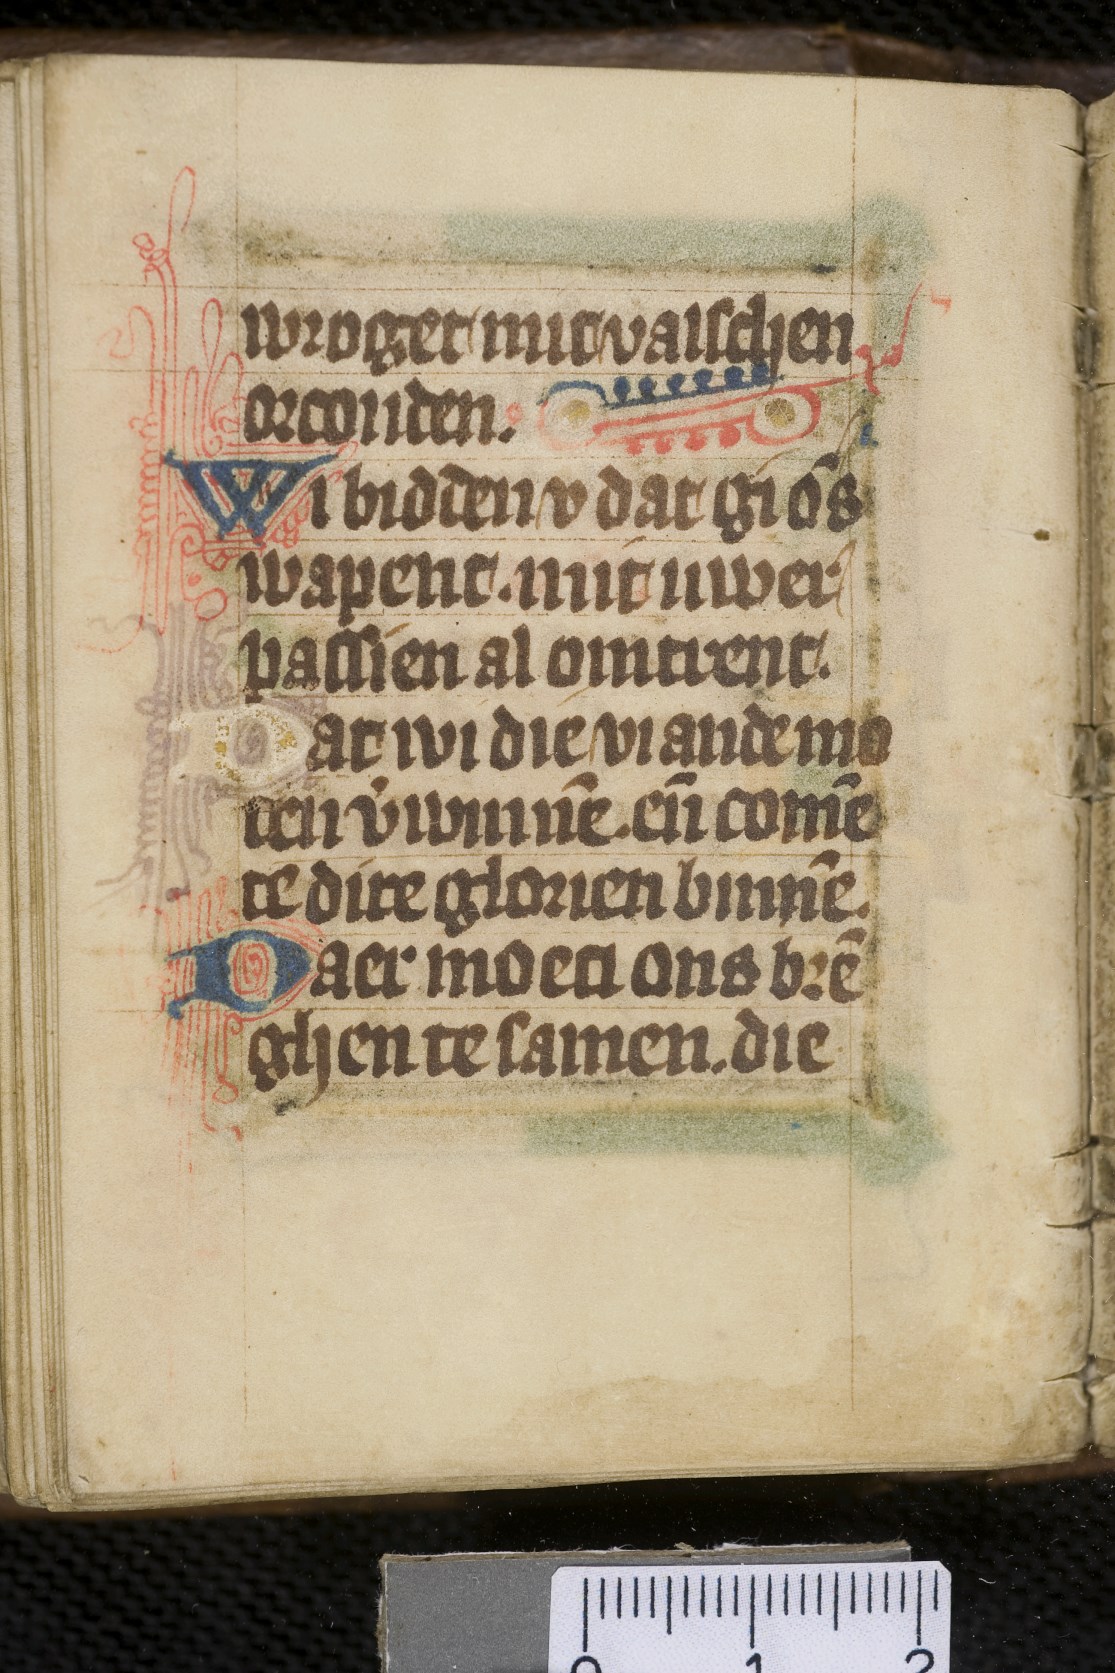 wroget mit valschen
orconden.
Wi bidden v dat gi ōs
wapent. mit uwer
passien al omtrent.
Dat wi die viande mo
ten v̓winnē. eñ comē
te dire glorien binnē.
Daer moeti ons brē
ghen te samen. die
0 1 2